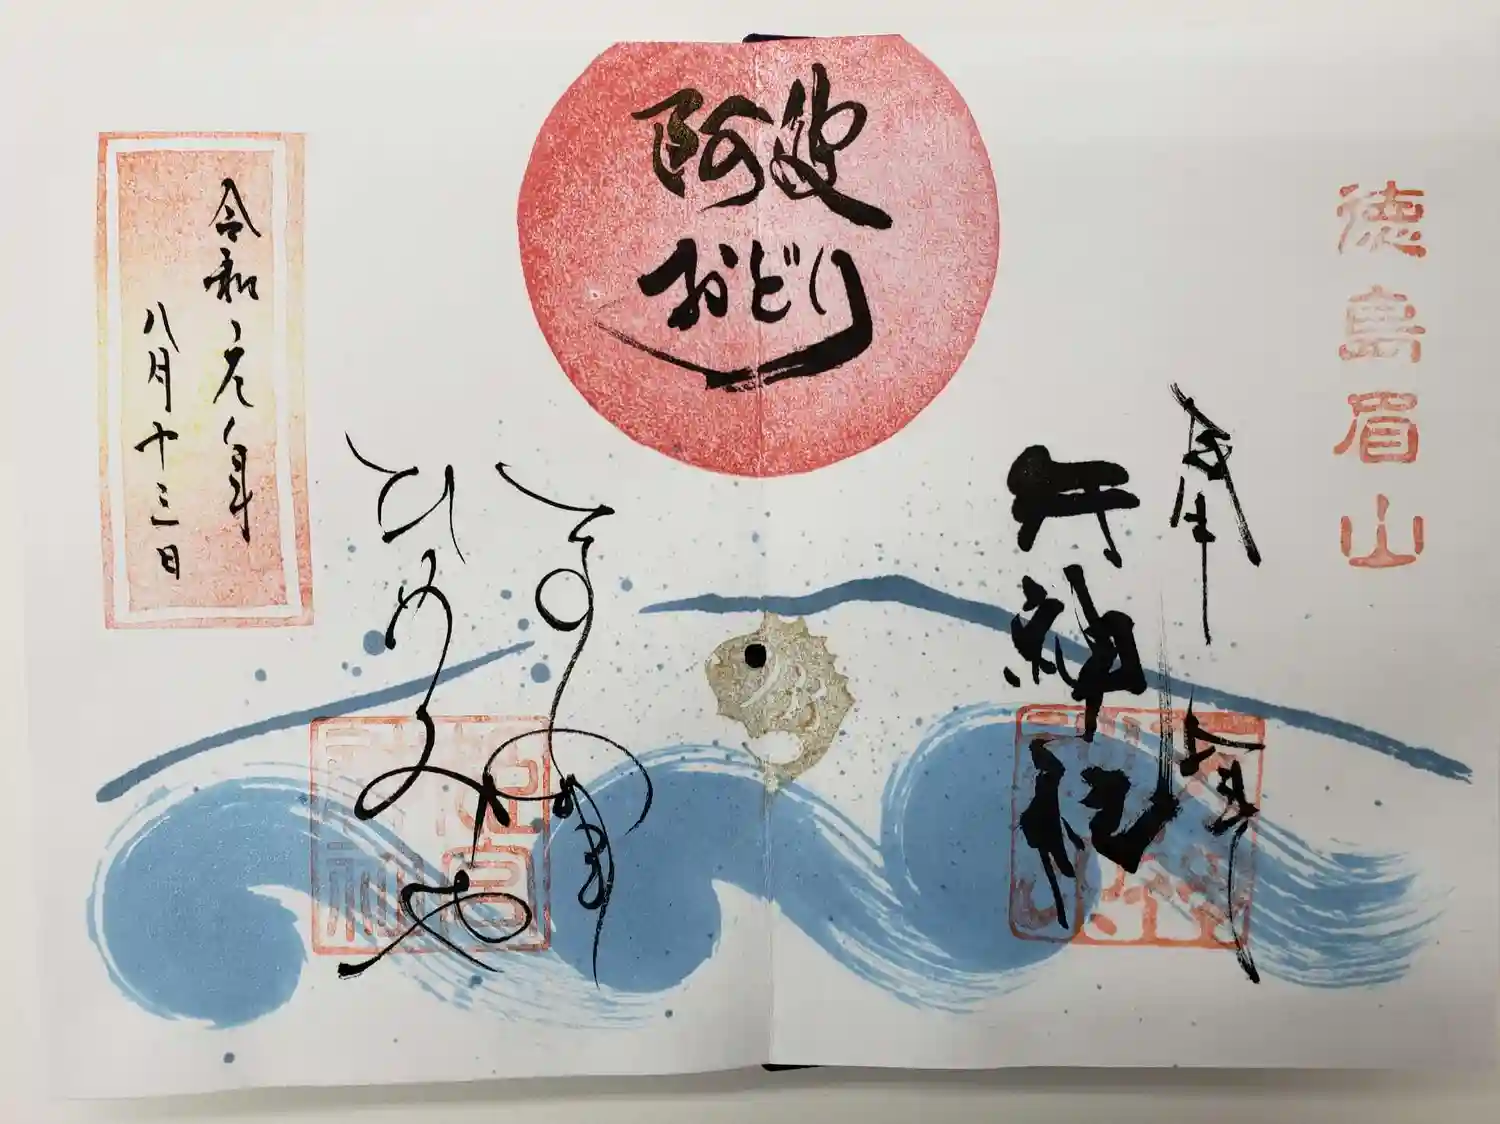 徳島眉山
奉拝
天神社
阿波
おどり
ひめみや
令和元年
八月十三日